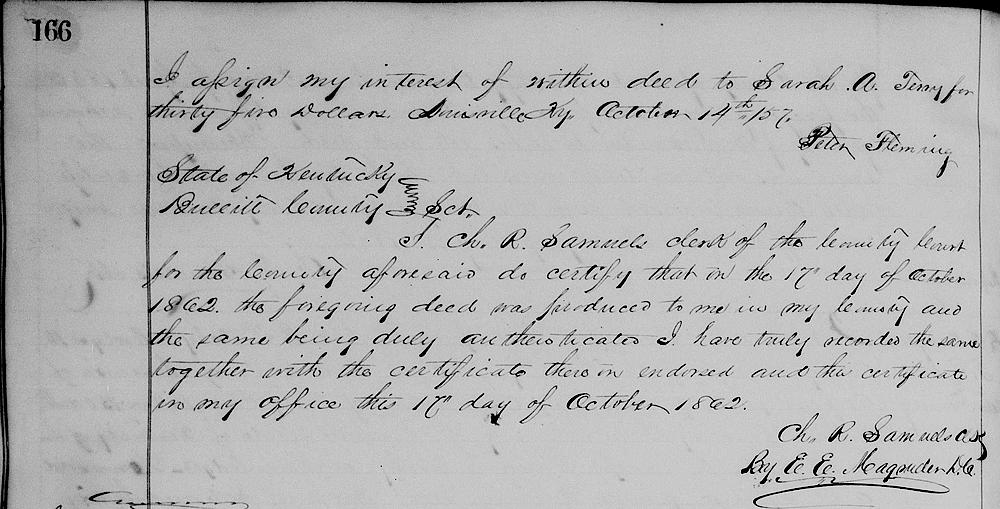 166
I assign my interest of within deed to Sarah A. Terry for
thirty five Dollars Louisville Ky October 14th 1857.
Peter Fleming
State of Kentucky
Bullitt County Sct.
I. Ch. R. Samuels clerk of the County Court
for the County aforesaid do certify that on the 17" day of October
1862. the foregoing deed was produced to me in my County and
the same being duly authenticated I have truly recorded the same
together with the certificate there on endorsed and the certificate
in my office this 17" day of October 1862.
Ch. R. Samuels
By E. E. Magruder D.C.